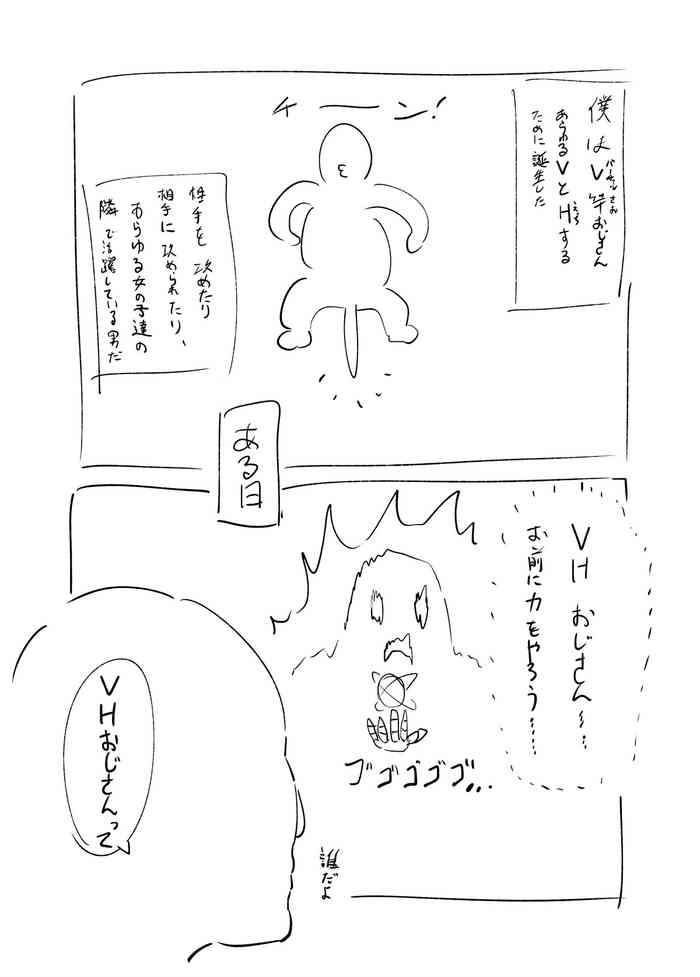 僕はV竿おじさん
バーチャルさお
あらゆるVとHする
えっち
ために誕生した
チーーン!
相手を攻めたり
相手に攻められたり、
あらゆる女の子達の
隣で活躍している男だ
ある日
VHおじさん……
お前に力をやろう……
ゴゴゴゴゴ...
VHおじさんって
誰だよ